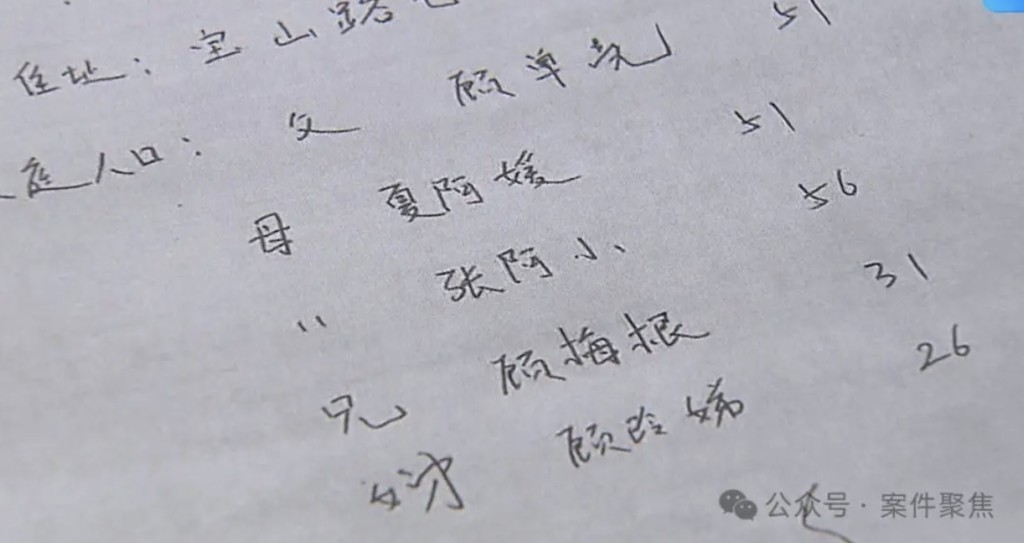 住址：宝山路
庭人口：父 顾单 51
母 夏阿媛 51
" 张阿小 56
兄 顾梅根 31
顾 娣 26
公众号·案件聚焦